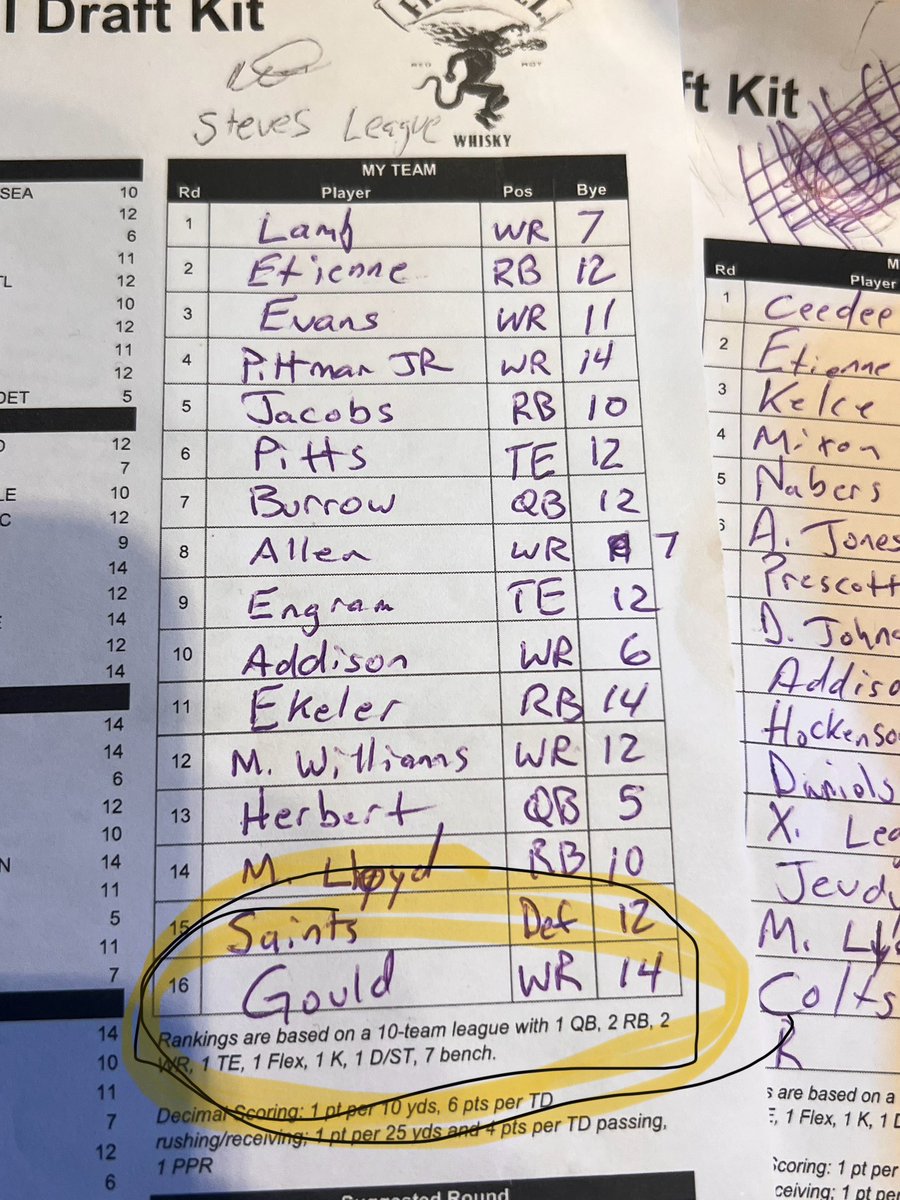 Draft Kit
Steves League
WHISKY
MY TEAM
Rd Player Pos Bye
1 Lamb WR 7
2 Etienne RB 12
3 Evans WR 11
4 Pittman JR WR 14
5 Jacobs RB 10
6 Pitts TE 12
7 Burrow QB 12
8 Allen WR 7
9 Engram TE 12
10 Addison WR 6
11 Ekeler RB 14
12 M. Williams WR 12
13 Herbert QB 5
14 M. Lloyd RB 10
15 Saints Def 12
16 Gould WR 14
Rankings are based on a 10-team league with 1 QB, 2 RB, 2
WR, 1 TE, 1 Flex, 1 K, 1 D/ST, 7 bench.
Decimal Scoring: 1 pt per 10 yds, 6 pts per TD
rushing/receiving; 1 pt per 25 yds and 4 pts per TD passing,
1 PPR
Suggested Round
SEA 10
12
6
11
12
10
12
11
12
DET 5
12
7
10
12
9
14
12
14
12
14
14
14
6
12
10
14
11
5
11
7
14
10
11
7
12
6
Kit
Rd Player
1 Ceedee
2 Etienne
3 Kelce
4 Mixon
5 Nabers
A. Jones
Prescott
D. Johns
Addiso
Hockenso
Daniels
X. Leg
Jeudy
M. Ll
Colts
R
are based on a
1 Flex, 1 K, 1
Scoring: 1 pt per